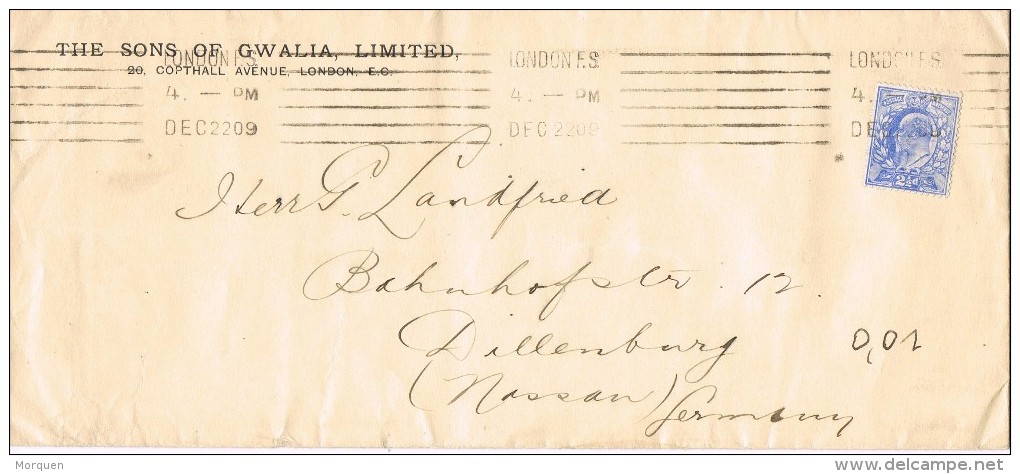 THE SONS OF GWALIA, LIMITED,
20, COPTHALL AVENUE, LONDON, E.C.
LONDON F.S. LONDON F.S. LONDON F.S.
4. — PM 4. — PM 4. PM
DEC 22 09 DEC 22 09 DEC
2½d
Herr G. Landfried
Bahnhofstr. 12.
Dillenburg
0,01
(Nassau) Germany
Morquen
delcampe.net